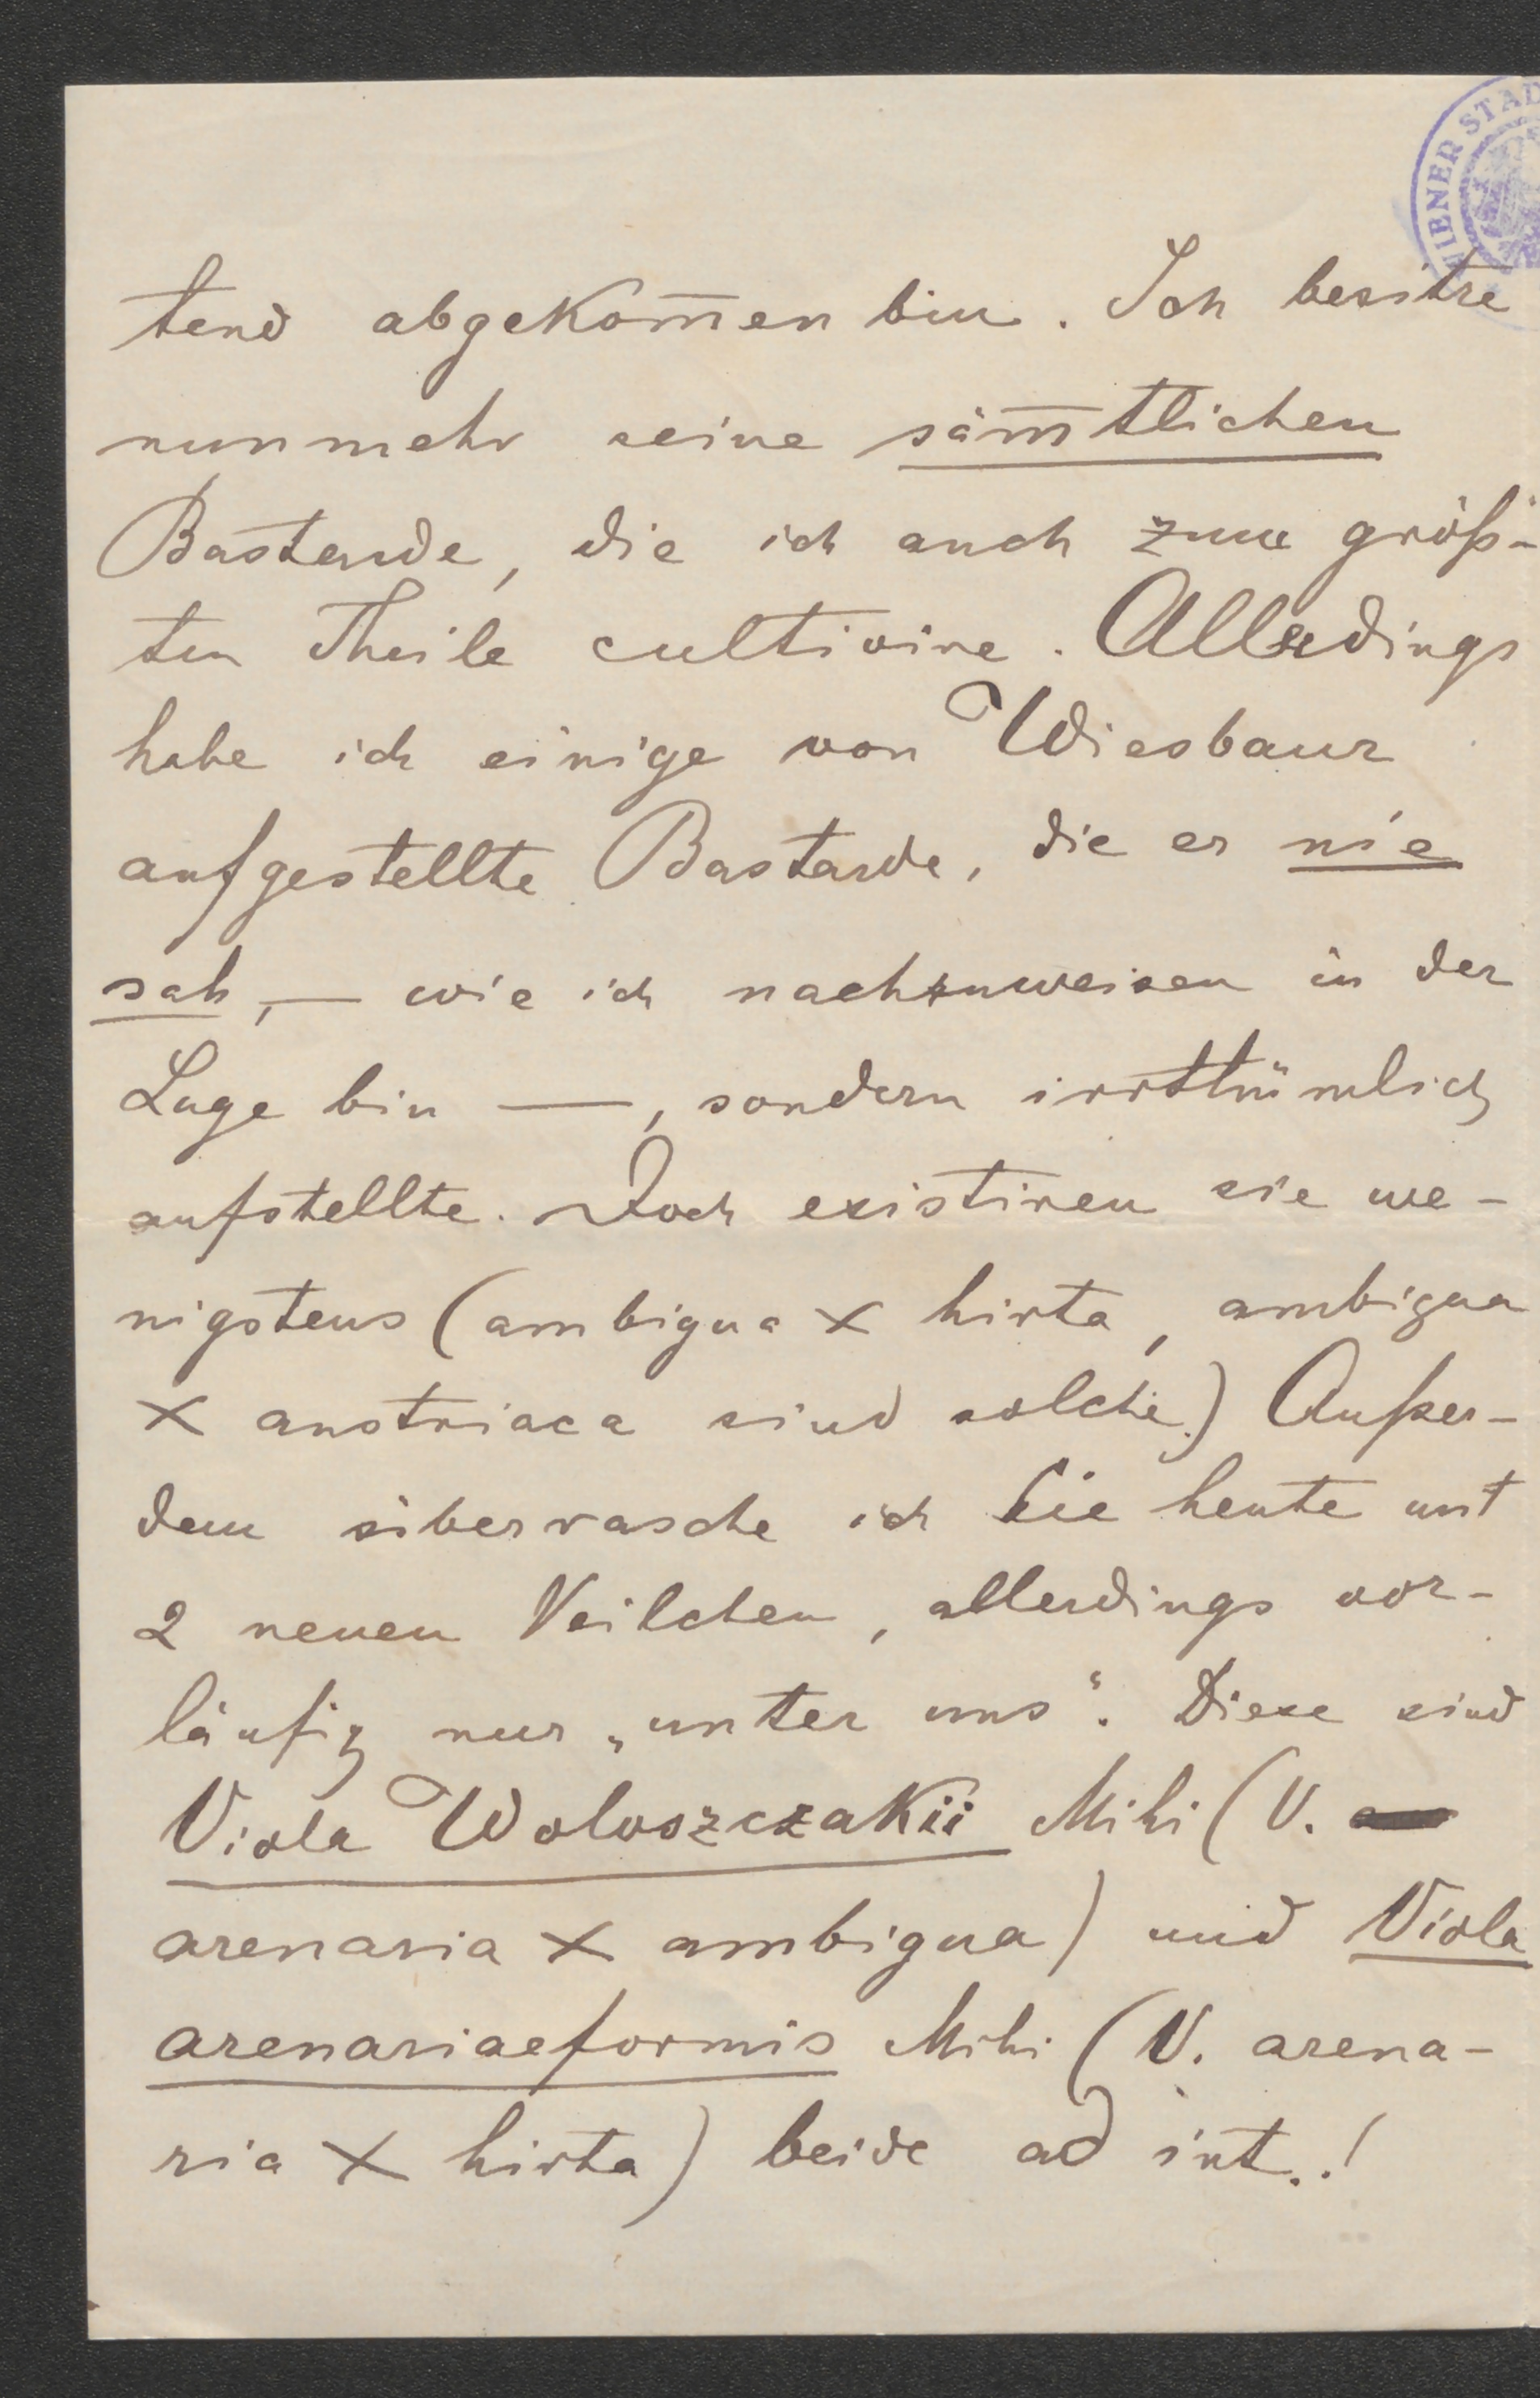 WIENER STAD
tend abgekom̄en bin. Ich besitze
nunmehr seine säm̄tlichen
Bastarde, die ich auch zum größ-
ten Theile cultivire. Allerdings
habe ich einige von Wiesbaur
aufgestellte Bastarde, die er nie
sah, — wie ich nachzuweisen in der
Lage bin —, sondern irrthümlich
aufstellte. Doch existiren sie we-
nigstens (ambigua × hirta, ambigua
× austriaca sind solche.) Außer-
dem überrasche ich Sie heute mit
2 neuen Veilchen, allerdings vor-
läufig nur „unter uns“. Diese sind
Viola Woloszczakii Mihi (V.
arenaria × ambigua) und Viola
arenariaeformis Mihi (V. arena-
ria × hirta) beide ad int..!